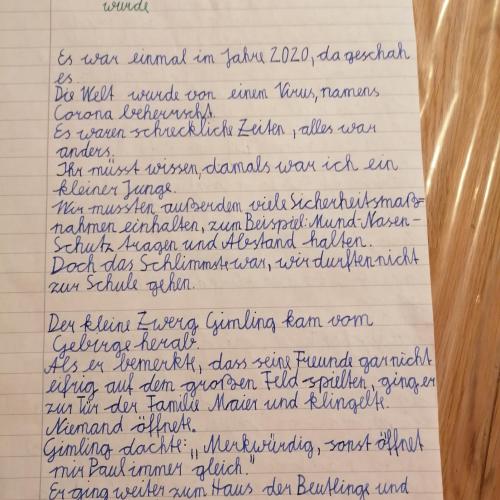 wurde
Es war einmal im Jahre 2020, da geschah
es
Die Welt wurde von einem Virus, namens
Corona beherrscht.
Es waren schreckliche Zeiten, alles war
anders.
Ihr müsst wissen, damals war ich ein
kleiner Junge.
Wir mussten außerdem viele Sicherheitsmaß=
nahmen einhalten, zum Beispiel: Mund-Nasen-
Schutz tragen und Abstand halten.
Doch das Schlimmste war, wir durften nicht
zur Schule gehen.
Der kleine Zwerg Gimling kam vom
Gebirge herab.
Als er bemerkte, dass seine Freunde gar nicht
eifrig auf dem großen Feld spielten, ging er
zur Tür der Familie Maier und klingelte.
Niemand öffnete.
Gimling dachte: „Merkwürdig, sonst öffnet
mir Paul immer gleich."
Er ging weiter zum Haus der Beutlinge und